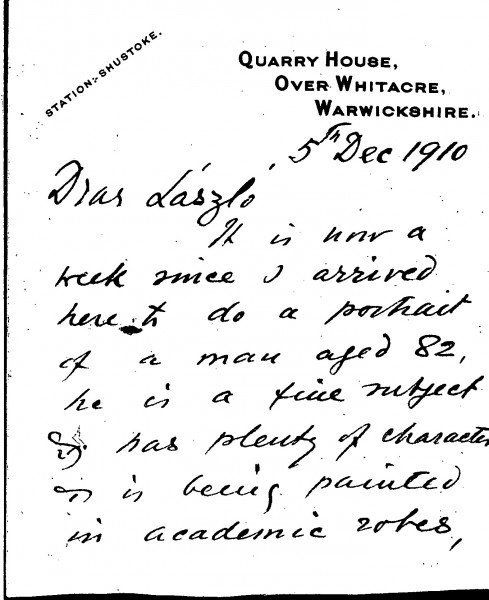 STATION:- SHUSTOKE.
QUARRY HOUSE,
OVER WHITACRE,
WARWICKSHIRE.
5th Dec 1910
Dear László
It is now a
week since I arrived
here to do a portrait
of a man aged 82,
he is a fine subject
& has plenty of character
& is being painted
in academic robes,